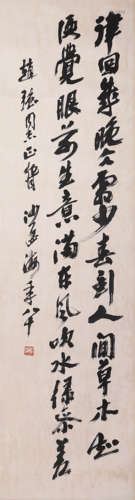 律回岁晚冰霜少春到人间草木知
便觉眼前生意满东风吹水绿参差
赵强同志正腕 沙孟海年八十